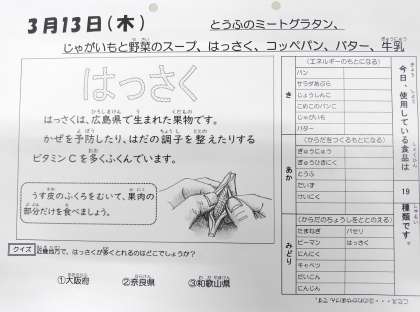 3月13日(木)
とうふのミートグラタン、
じゃがいもと野菜のスープ、はっさく、コッペパン、バター、牛乳
はっさく
はっさくは、広島県で生まれた果物です。
かぜを予防したり、はだの調子を整えたりする
ビタミンCを多くふくんでいます。
うす皮のふくろをむいて、果肉の
部分だけを食べましょう。
クイズ 近畿地方で、はっさくが多くとれるのはどこでしょうか?
①大阪府 ②奈良県 ③和歌山県
き
(エネルギーのもとになる)
パン
サラダあぶら
じょうしんこ
こめこのパンこ
じゃがいも
バター
あか
(からだをつくるもとになる)
ぎゅうにゅう
ぎゅうひきにく
とうふ
だいず
けいにく
みどり
(からだのちょうしをととのえる)
たまねぎ パセリ
ピーマン はっさく
にんにく
キャベツ
だいこん
にんじん
今日、使用している食品は
19
種類です。